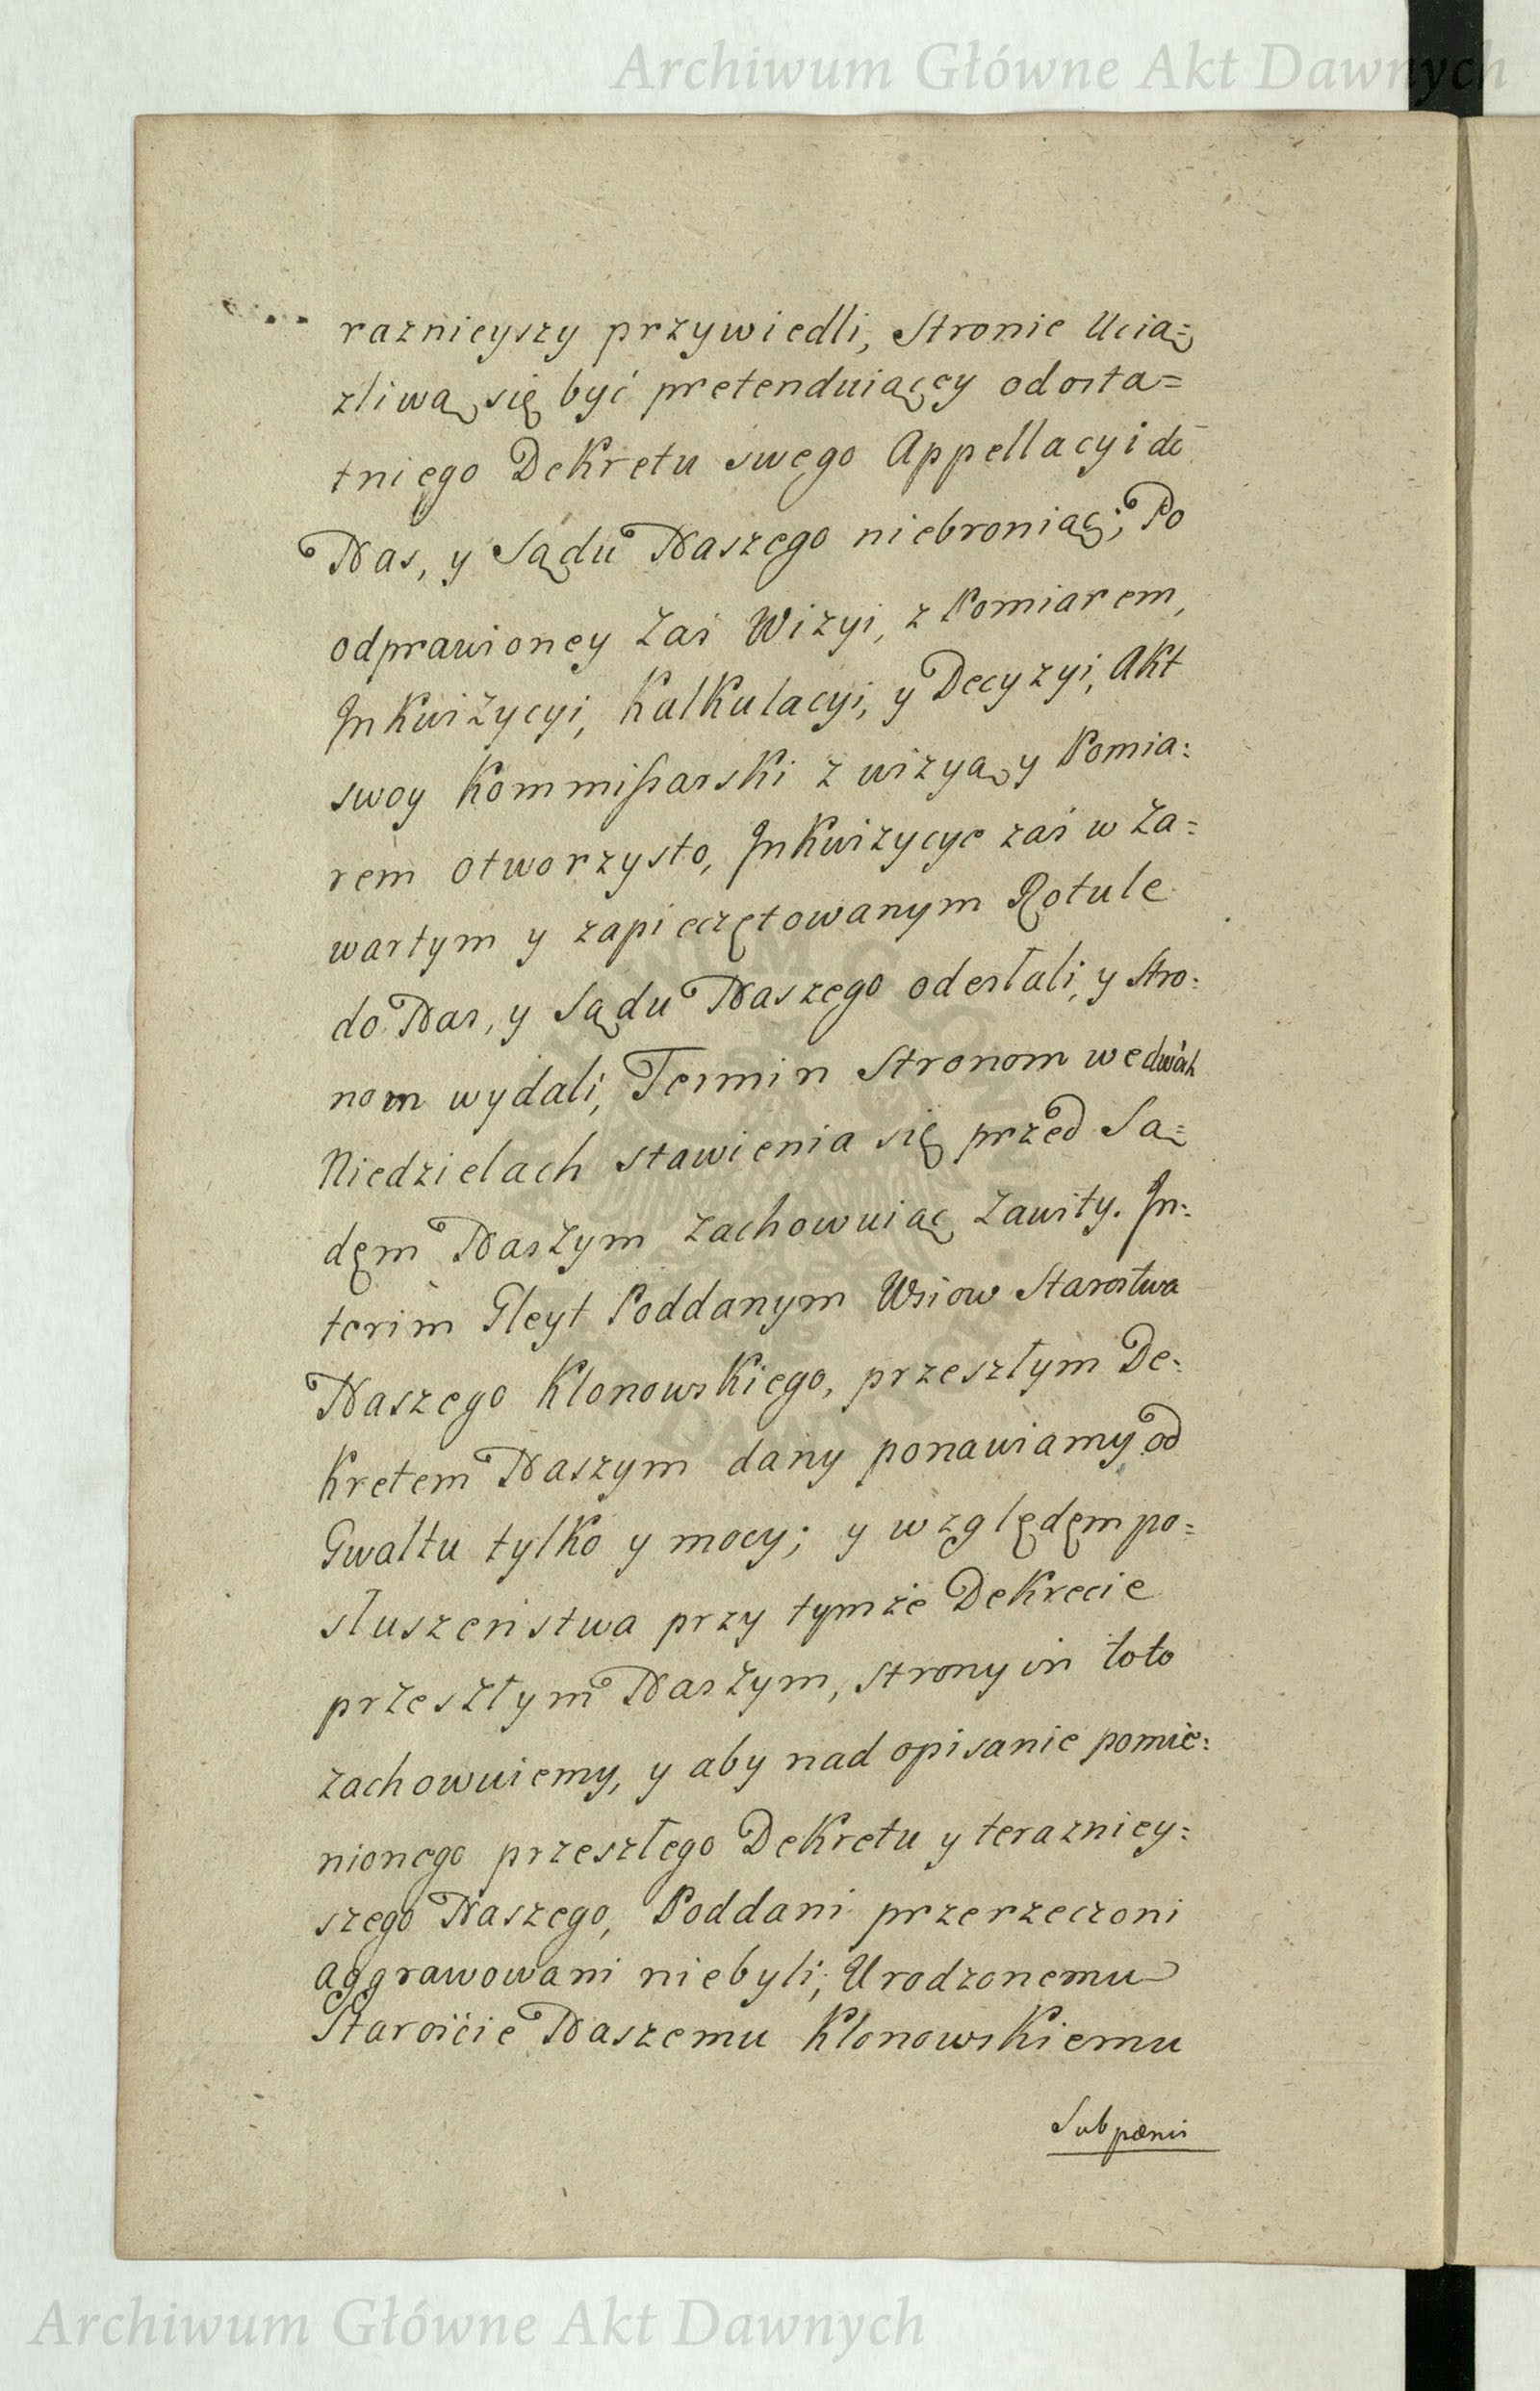 Archiwum Główne Akt Dawnych
raznieyszy przywiedli, Stronie Ucią=
zliwą się być pretenduiącey od osta=
tniego Dekretu swego Appellacyi do
Nas, y Sądu Naszego niebroniąc; Po
odprawioney zaś Wizyi, z Pomiarem,
Inkwizycyi, Kalkulacyi, y Decyzyi, Akt
swoy Kommissarski z wizyą y Pomia:
rem otworzysto, Inkwizycye zaś w za=
wartym y zapieczętowanym Rotule
do Nas, y Sądu Naszego odesłali, y Stro:
nom wydali, Termin Stronom we dwóch
Niedzielach stawienia się przed Są=
dęm Naszym zachowuiąc zawity. In:
terim Gleyt Poddanym Wsiow Starostwa
Naszego Klonowskiego, przeszłym De:
kretem Naszym dany ponawiamy od
Gwałtu tylko y mocy; y względęm po=
słuszeństwa przy tymże Dekrecie
przeszłym Naszym, strony in toto
zachowuiemy, y aby nad opisanie pomie:
nionego przeszłego Dekretu y terazniey:
szego Naszego, Poddani przerzeczoni
aggrawowani niebyli, Urodzonemu
Staroście Naszemu Klonowskiemu
Sub pænis
Archiwum Główne Akt Dawnych